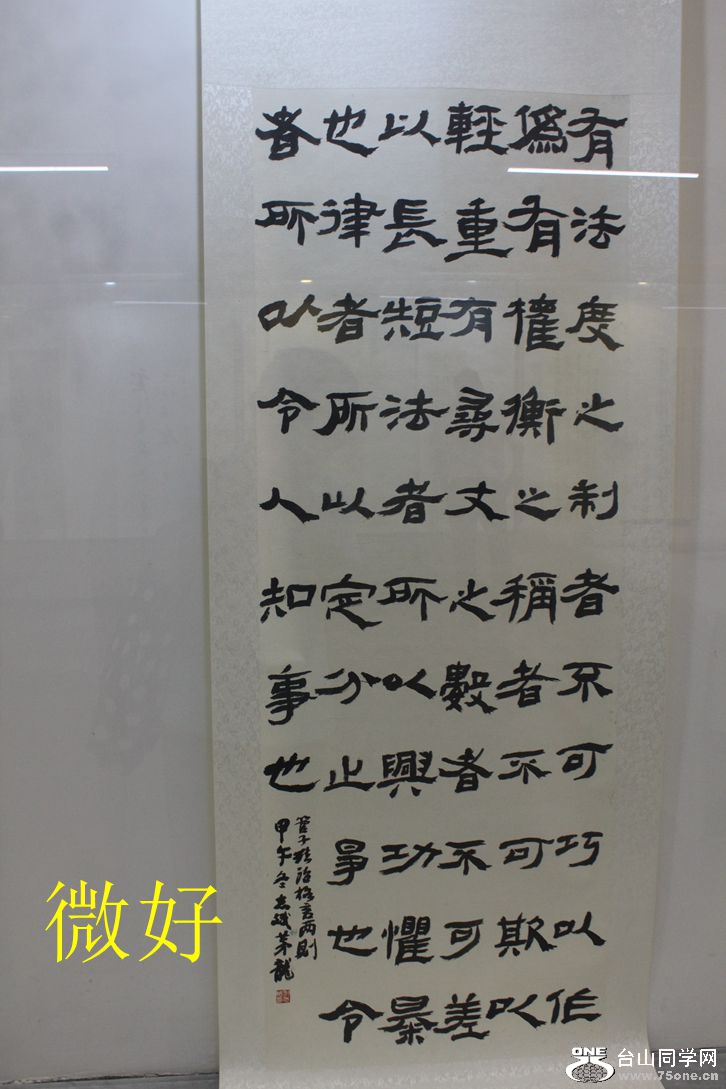 有法度之制者不可巧以作
僞有權衡之稱者不可欺以
輕重有尋丈之數者不可差
以長短法者所以興功懼暴
也律者所以定分止爭也令
者所以令人知事也
管子治格言两則
甲午冬茅龍
微好
ONE 台山同学网
www.75one.cn